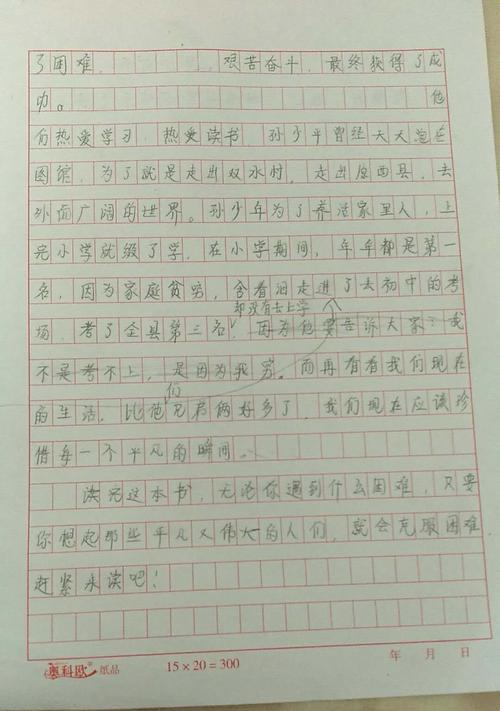 了困难。 艰苦奋斗，最终获得了成
功。 他
们热爱学习，热爱读书，孙少平曾经天天泡在
图馆，为了就是走出双水村，走出原西县，去
外面广阔的世界。孙少年为了养活家里人，上
完小学就缀了学，在小学期间，年年都是第一
名，因为家庭贫穷，含着泪走进了去初中的考
却没有去上学
场，考了全县第三名，因为他要告诉大家：我
不是考不上，是因为我穷。而再看看我们现在
们
的生活，比他兄弟俩好多了，我们现在应该珍
惜每一个平凡的瞬间。
读完这本书，无论你遇到什么困难，只要
你想起那些平凡又伟大的人们，就会克服困难
赶紧来读吧！
奥科欧 纸品 15×20=300 年 月 日